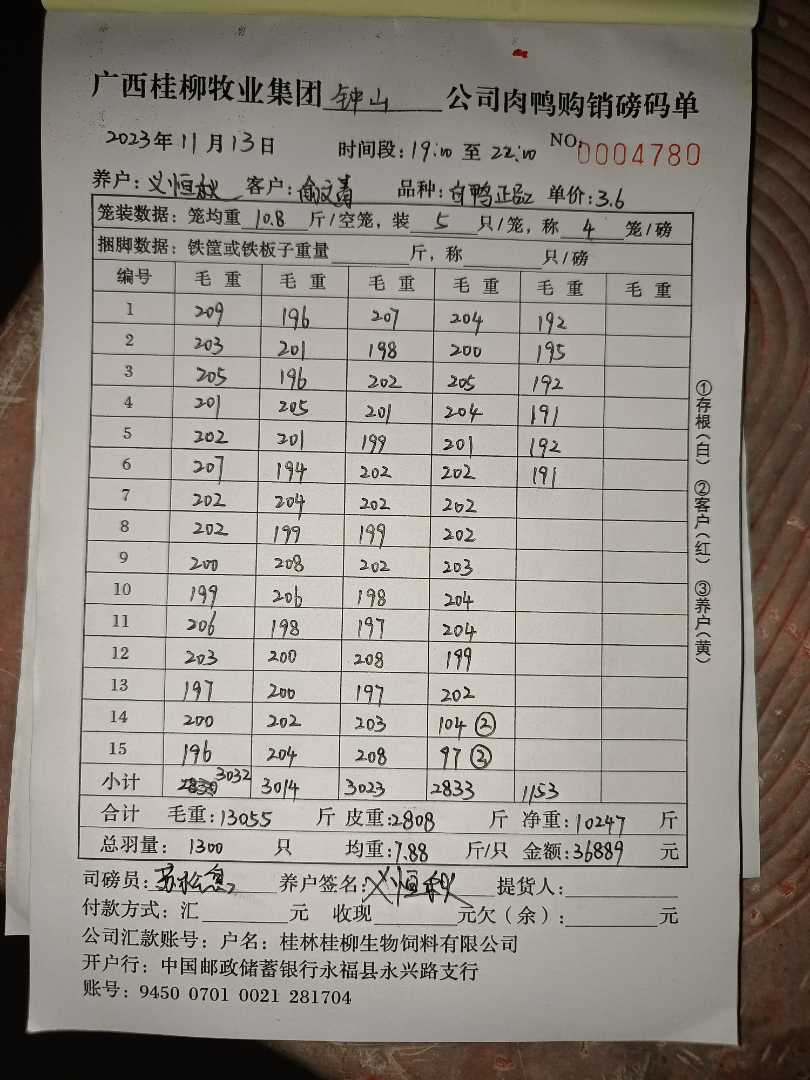 广西桂柳牧业集团 钟山 公司肉鸭购销磅码单
2023年11月13日 时间段:19:00至22:00 NO:0004780
养户:义恒秋 客户:俞文青 品种:白鸭正品 单价:3.6
笼装数据:笼均重 10.8 斤/空笼,装 5 只/笼,称 4 笼/磅
捆脚数据:铁筐或铁板子重量 斤,称 只/磅
编号 毛重 毛重 毛重 毛重 毛重 毛重
1 209 196 207 204 192
2 203 201 198 200 195
3 205 196 202 205 192
4 201 205 201 204 191
5 202 201 199 201 192
6 207 194 202 202 191
7 202 204 202 202
8 202 199 199 202
9 200 208 202 203
10 199 206 198 204
11 206 198 197 204
12 203 200 208 199
13 197 200 197 202
14 200 202 203 104 ②
15 196 204 208 97 ②
小计 3032 3014 3023 2833 1153
合计 毛重:13055 斤 皮重:2808 斤 净重:10247 斤
总羽量:1300 只 均重:7.88 斤/只 金额:36889 元
司磅员: 养户签名:义恒秋 提货人:
付款方式:汇 元 收现 元欠(余): 元
公司汇款账号:户名:桂林桂柳生物饲料有限公司
开户行:中国邮政储蓄银行永福县永兴路支行
账号:9450 0701 0021 281704
①存根(白) ②客户(红) ③养户(黄)